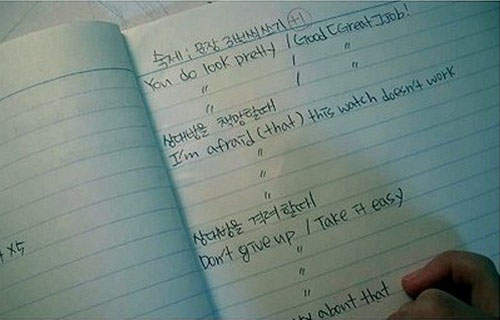 숙제 : 문장 3번씩 쓰기 +1
You do look pretty / Good [Great] job!
" / "
" / "
상대방을 책망할때
I'm afraid (that) this watch doesn't work
"
"
"
상대방을 격려할때
Don't give up / Take it easy
"
"
"
about that
×5